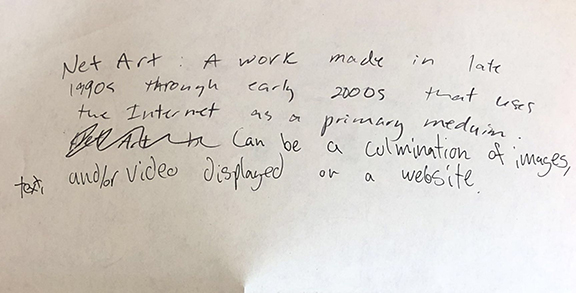 Net Art : A work made in late
1990s through early 2000s that uses
the Internet as a primary meduim.
Can be a culmination of images,
text, and/or video displayed on a website.